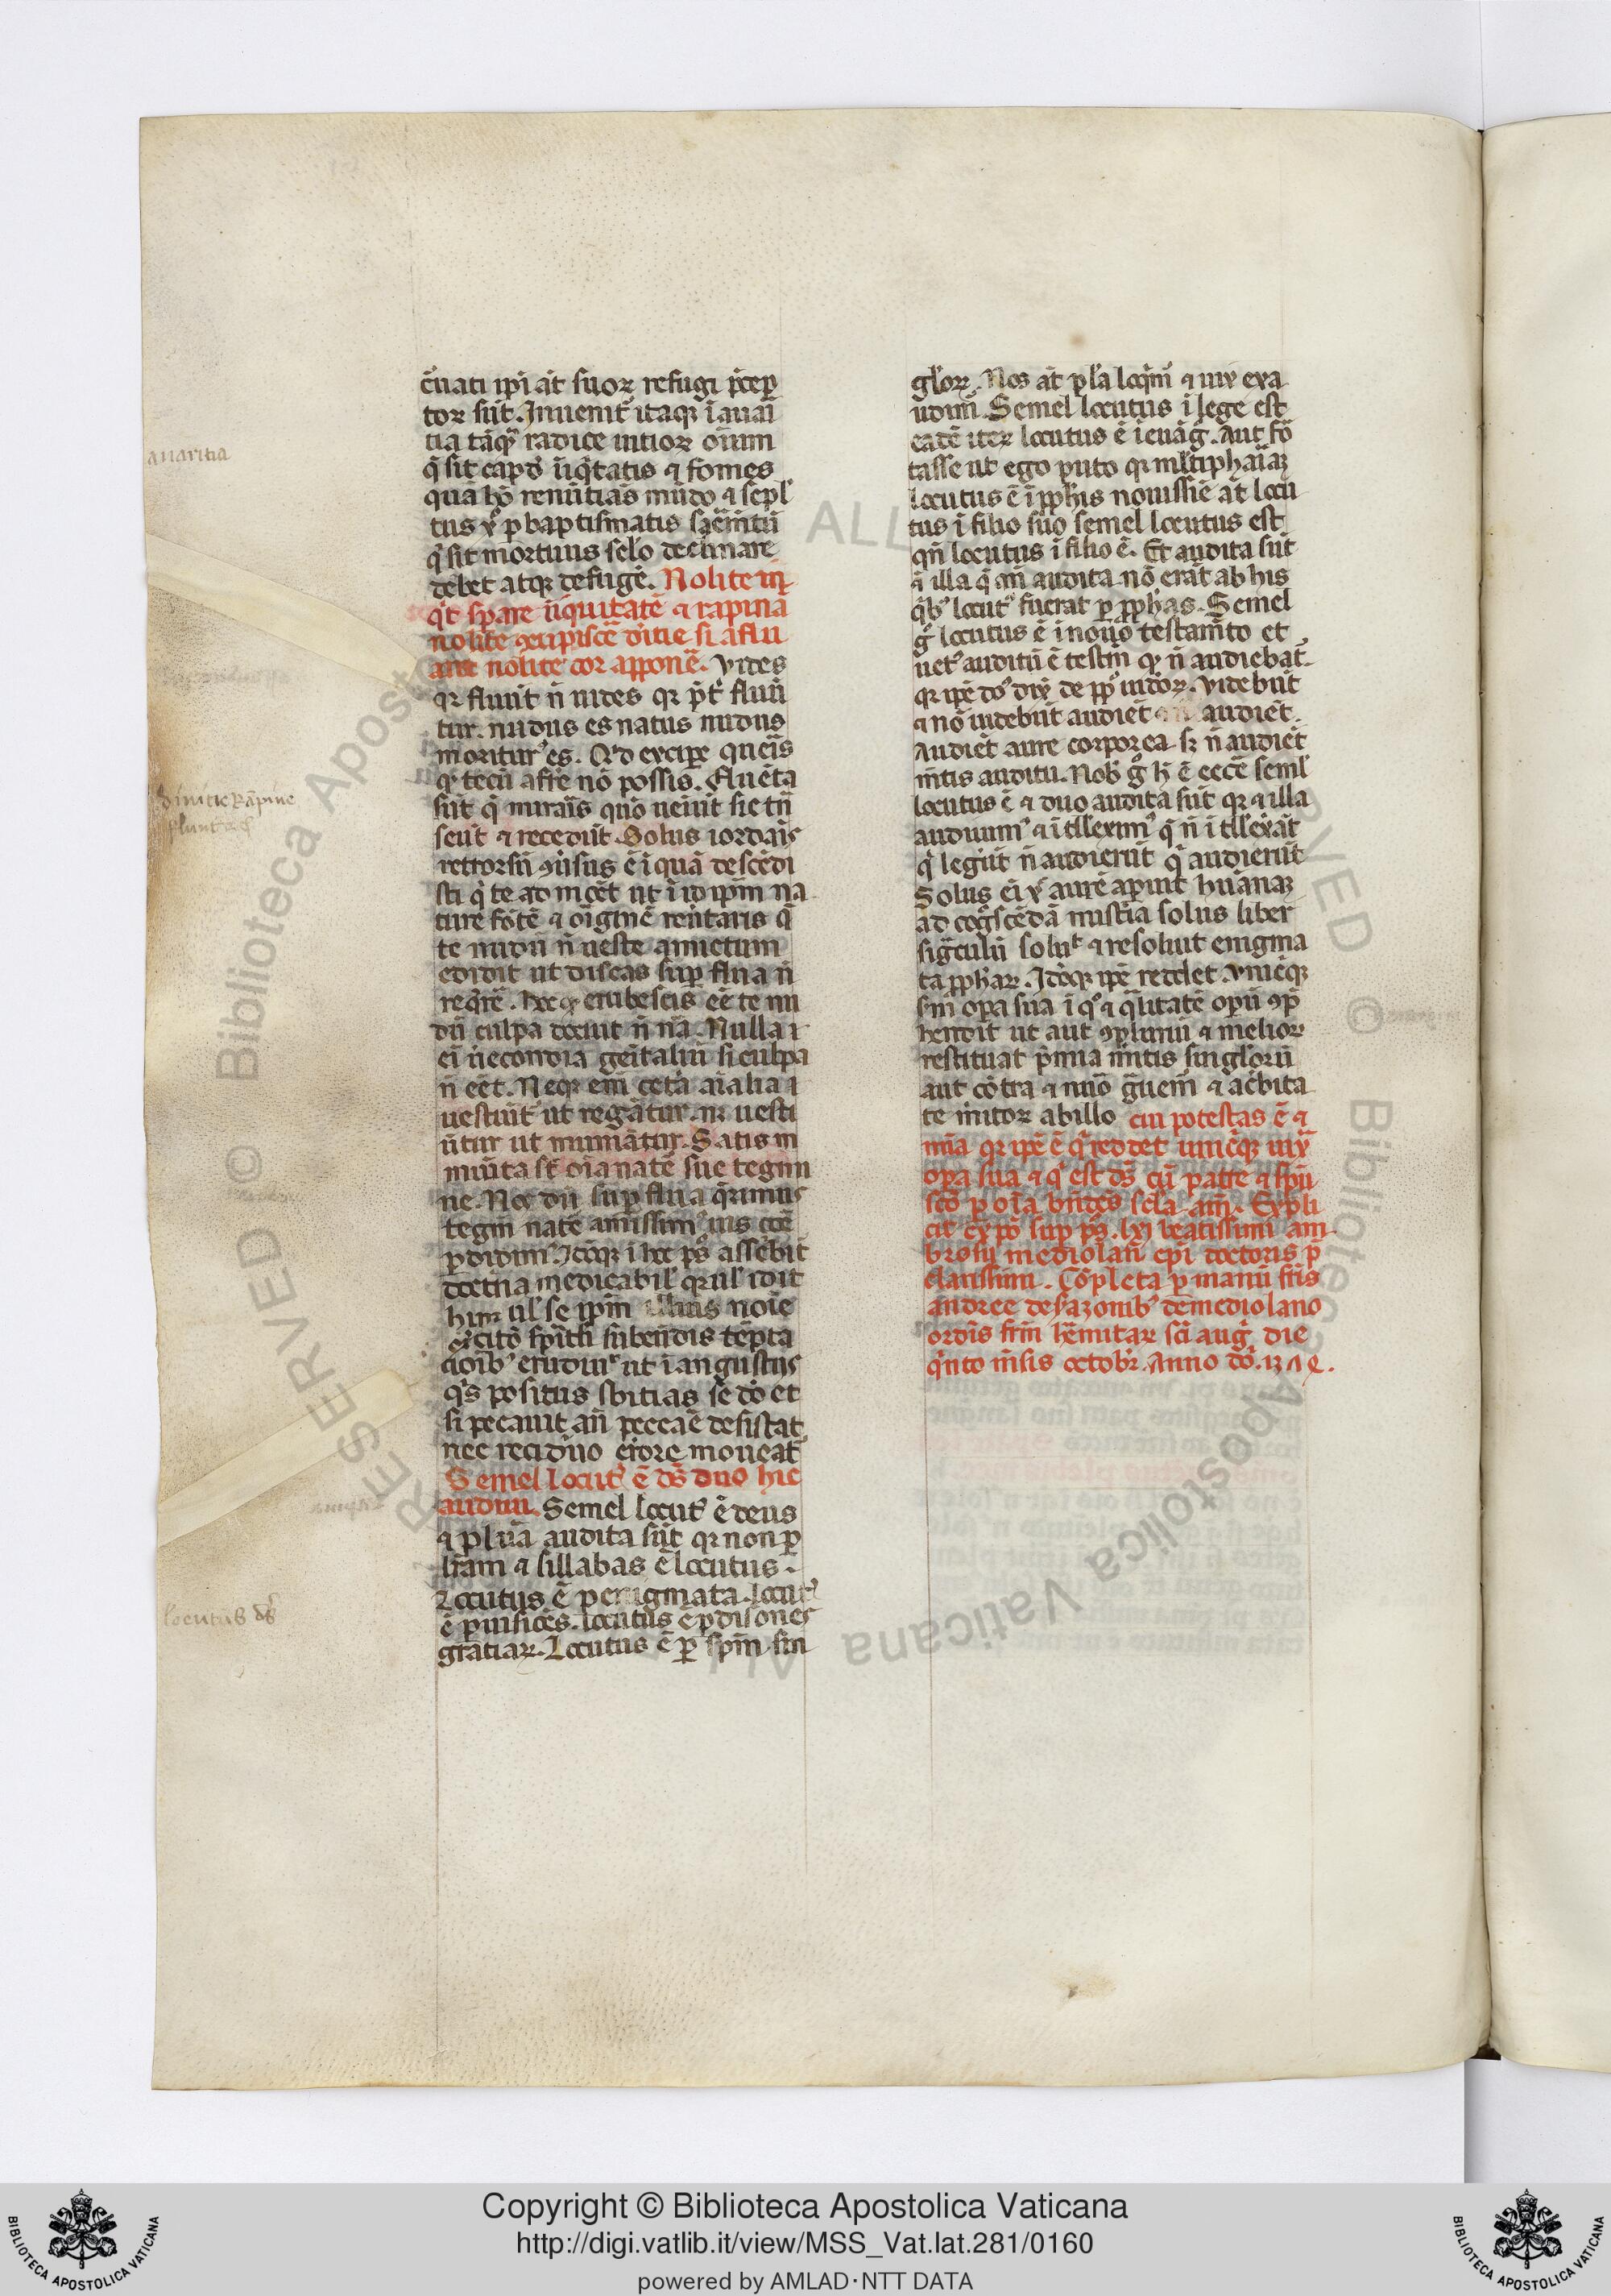 avaritia
diuitie Rapine
fluunt
locutus ds
c̄uati ip̄i āt suoꝝ refugi
toꝝ sūt. Inuenit͛ itaqꝫ ī auari
tia tāq̄ radice uitioꝝ oīum
q̄ sit capđ īiq̄tatis ⁊ fomes
quā hō renūtiās mūdo ⁊ sepl͛
tus xp̄ ꝑ baptismatis
q̄ sit mortuus sclo declinare
debet atqꝫ defugē. Nolite in
q̇t sꝑare īiquitatē ⁊ rapinā
nolite ꝯcupiscē diuitie si aflu
ant nolite cor apponē. Vides
qꝛ fluūt n̄ uides qꝛ p̄t͛ fluū
tur. nudus es natus nudus
moritur͛ es. Qͥd exciꝑe queris
qͥ tecū affre nō possis. Fluēta
sūt q̄ miraris quō ueniūt sic trā
seūt ⁊ recedūt. Solus iordāis
retrorsū ꝯuersus ē ī quā descēdi
sti qͥ te admōet ut ī id ip̄m na
ture fōtē ⁊ originē reuertaris q̄
te nudū n̄ ueste amictum
edidit ut discas suꝑflua n̄
reqͥrē. erubescis eē te nu
dū culpa docuit n̄ nā. Nulla
ei uecordia genitaliū si culpa
n̄ eēt. Neqꝫ eni cetā aīalia
uestiūt ut tegātur. uesti
ūtur ut muniātur. Satis
munita st̄ oīa natē sue tegmi
ne. Nos dū suꝑflua q̄rimus
tegm̄ natē amissim͛
ꝑdidim͛. Idcqꝫ ī hoc ps̄ asserbit
doctrīa medicabil͛
uł se ip̄m illius noīe
excitō sp̄itꝰ subeūdis tēpta
tioibꝰ erudiuit ut ī angustiis
qͥs positus sbitias se dō et
si peccauit an̄ peccaē desistat
nec recidiuo erore moueat͛
Semel locut͛ ē ds̄ duo hic
audiui. Semel locut͛ ē deus
⁊ plīa audita sūt qꝛ non ꝑ
lr̄am ⁊ sillabas ē locutus.
Locutus ē ꝑ enigmata. locut͛
ē ꝑ uisiones. locutus ē ꝑ diuisiones
gratiaꝝ. Locutus ē ꝑ sp̄m sin
gloꝝ. Nos āt pl͛a loq̄im͛ ⁊ uix exa
udim͛. Semel locutus ī lege est
eadē iteꝝ locutus ē ī euāg̅. Aut fō
tasse ut ego puto qꝛ multiphariā
locutus ē ī prophetis nouissīe āt locu
tus ī filio suo semel locutus est
qn̄ locutus ī filio ē. Et audita sūt
⁊ illa q̄ an̄ audita nō erāt ab his
qͥbꝰ locut͛ fuerat ꝑ prophas. Semel
gͦ locutus ē ī nouo testam̄to et
uet͛ auditū ē testm̄ qꝫ n̄ audiebat͛
qꝛ ip̄e dꝰ dix̄ de ppł͛o iudeoꝝ. Videbūt
⁊ nō uidebūt audiēt ⁊ n̄ audiēt.
Audiēt aure corporea sꝫ n̄ audiēt
mētis auditu. Nob̄ gͦ ħ ē ecce semł
locutus ē ⁊ duo audita sūt qꝛ ⁊ illa
audiuim͛ ⁊ ītellexim͛ q̄ n̄ ītellexāt
qͥ legūt n̄ audierūt qͥ audierūt
Solus ei xp̄ aurē aperuit humanā
ad cog̅scēdā mist̄ia solus liber
sig̅culū soluit ⁊ resoluit enigma
ta prophaꝝ. Idcqꝫ ip̄e reddet. Vnicͥqꝫ
scdm̄ oꝑa sua ī qͦ ⁊ q̄litatē oꝑū ꝯp̄
hendit ut aut ꝯplurimū ⁊ melioꝝ
restituat p̄mia mētis singlorū
aut cōtra ⁊ nūo grauem̄ ⁊ acbita
te minoꝝ ab illo cui potestas ē ⁊
mīa qꝛ ip̄e ē qͥ reddet unicͥqꝫ iux̄
oꝑa sua ⁊ qͥ est ds̄ cū patre ⁊ sp̄u
scō ꝑ oīa bn̄dcs scl̄a am̄. Expli
cit expō suꝑ ps̄. lxi beatissimi am
brosij mediolan̄ ep̄i doctoris p̄
clarissimi. Cōpleta ꝑ manū fr̄is
andree de sazonibꝰ de mediolano
ord̄is fr̄m h̄emitaꝝ sc̄i aug̅ die
qͥnto m̄sis octobr̄. Anno dō.
Copyright © Biblioteca Apostolica Vaticana
http://digi.vatlib.it/view/MSS_Vat.lat.281/0160
powered by AMLAD·NTT DATA
BIBLIOTECA APOSTOLICA VATICANA
BIBLIOTECA APOSTOLICA VATICANA